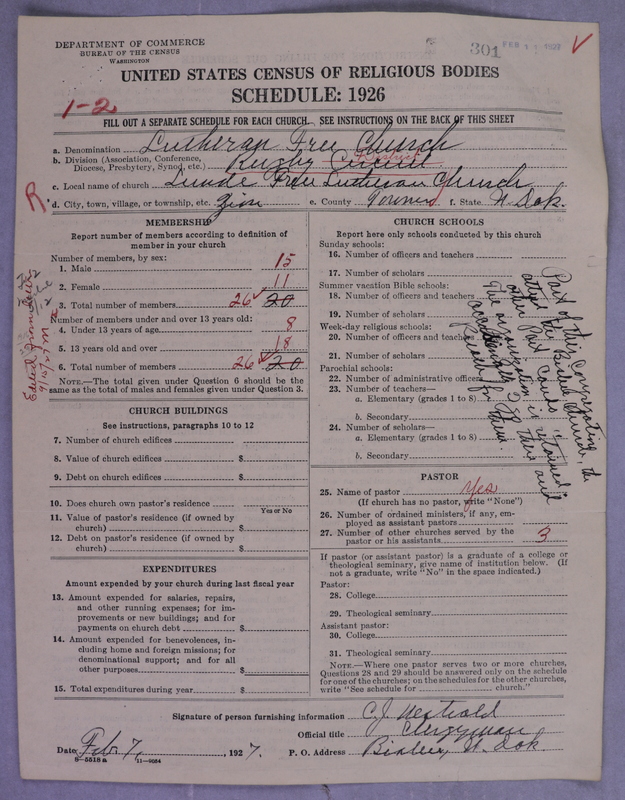 DEPARTMENT OF COMMERCE
BUREAU OF THE CENSUS
WASHINGTON
301 FEB 11 1927
UNITED STATES CENSUS OF RELIGIOUS BODIES
SCHEDULE: 1926
1-2
FILL OUT A SEPARATE SCHEDULE FOR EACH CHURCH. SEE INSTRUCTIONS ON THE BACK OF THIS SHEET
a. Denomination Lutheran Free Church
b. Division (Association, Conference, Diocese, Presbytery, Synod, etc.) Rugby Circuit
c. Local name of church Lunde Free Lutheran Church
R.
d. City, town, village, or township, etc. Zion e. County Towner f. State N. Dak.
MEMBERSHIP
Report number of members according to definition of member in your church
Number of members, by sex:
1. Male 15
2. Female 11
3. Total number of members 26 20
Number of members under and over 13 years old:
4. Under 13 years of age 8
5. 13 years old and over 18
6. Total number of members 26 20
NOTE.—The total given under Question 6 should be the same as the total of males and females given under Question 3.
CHURCH BUILDINGS
See instructions, paragraphs 10 to 12
7. Number of church edifices
8. Value of church edifices $
9. Debt on church edifices $
10. Does church own pastor's residence?
Yes or No
11. Value of pastor's residence (if owned by church) $
12. Debt on pastor's residence (if owned by church) $
EXPENDITURES
Amount expended by your church during last fiscal year
13. Amount expended for salaries, repairs, and other running expenses; for improvements or new buildings; and for payments on church debt $
14. Amount expended for benevolences, including home and foreign missions; for denominational support; and for all other purposes $
15. Total expenditures during year $
CHURCH SCHOOLS
Report here only schools conducted by this church
Sunday schools:
16. Number of officers and teachers
17. Number of scholars
Summer vacation Bible schools:
18. Number of officers and teachers
19. Number of scholars
Week-day religious schools:
20. Number of officers and teachers
21. Number of scholars
Parochial schools:
22. Number of administrative officers
23. Number of teachers—
a. Elementary (grades 1 to 8)
b. Secondary
24. Number of scholars—
a. Elementary (grades 1 to 8)
b. Secondary
Part of this Congregation
attend the Bisbee Church, the
other Part Cando
The organization is retained
PASTOR
25. Name of pastor Yes
(If church has no pastor, write "None")
26. Number of ordained ministers, if any, employed as assistant pastors
27. Number of other churches served by the pastor or his assistants 3
If pastor (or assistant pastor) is a graduate of a college or theological seminary, give name of institution below. (If not a graduate, write "No" in the space indicated.)
Pastor:
28. College
29. Theological seminary
Assistant pastor:
30. College
31. Theological seminary
NOTE.—Where one pastor serves two or more churches, Questions 28 and 29 should be answered only on the schedule for one of the churches; on the schedules for the other churches, write "See schedule for church."
Signature of person furnishing information C. J.
Official title Clergyman
Date Feb 7, 1927. P. O. Address N. Dak
8—5518 a 11—9034